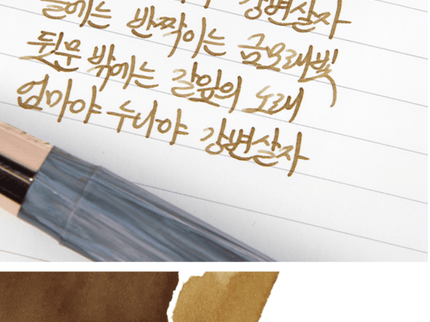 뜰에는 반짝이는 금모래빛
뒷문 밖에는 갈잎의 노래
엄마야 누나야 강변살자